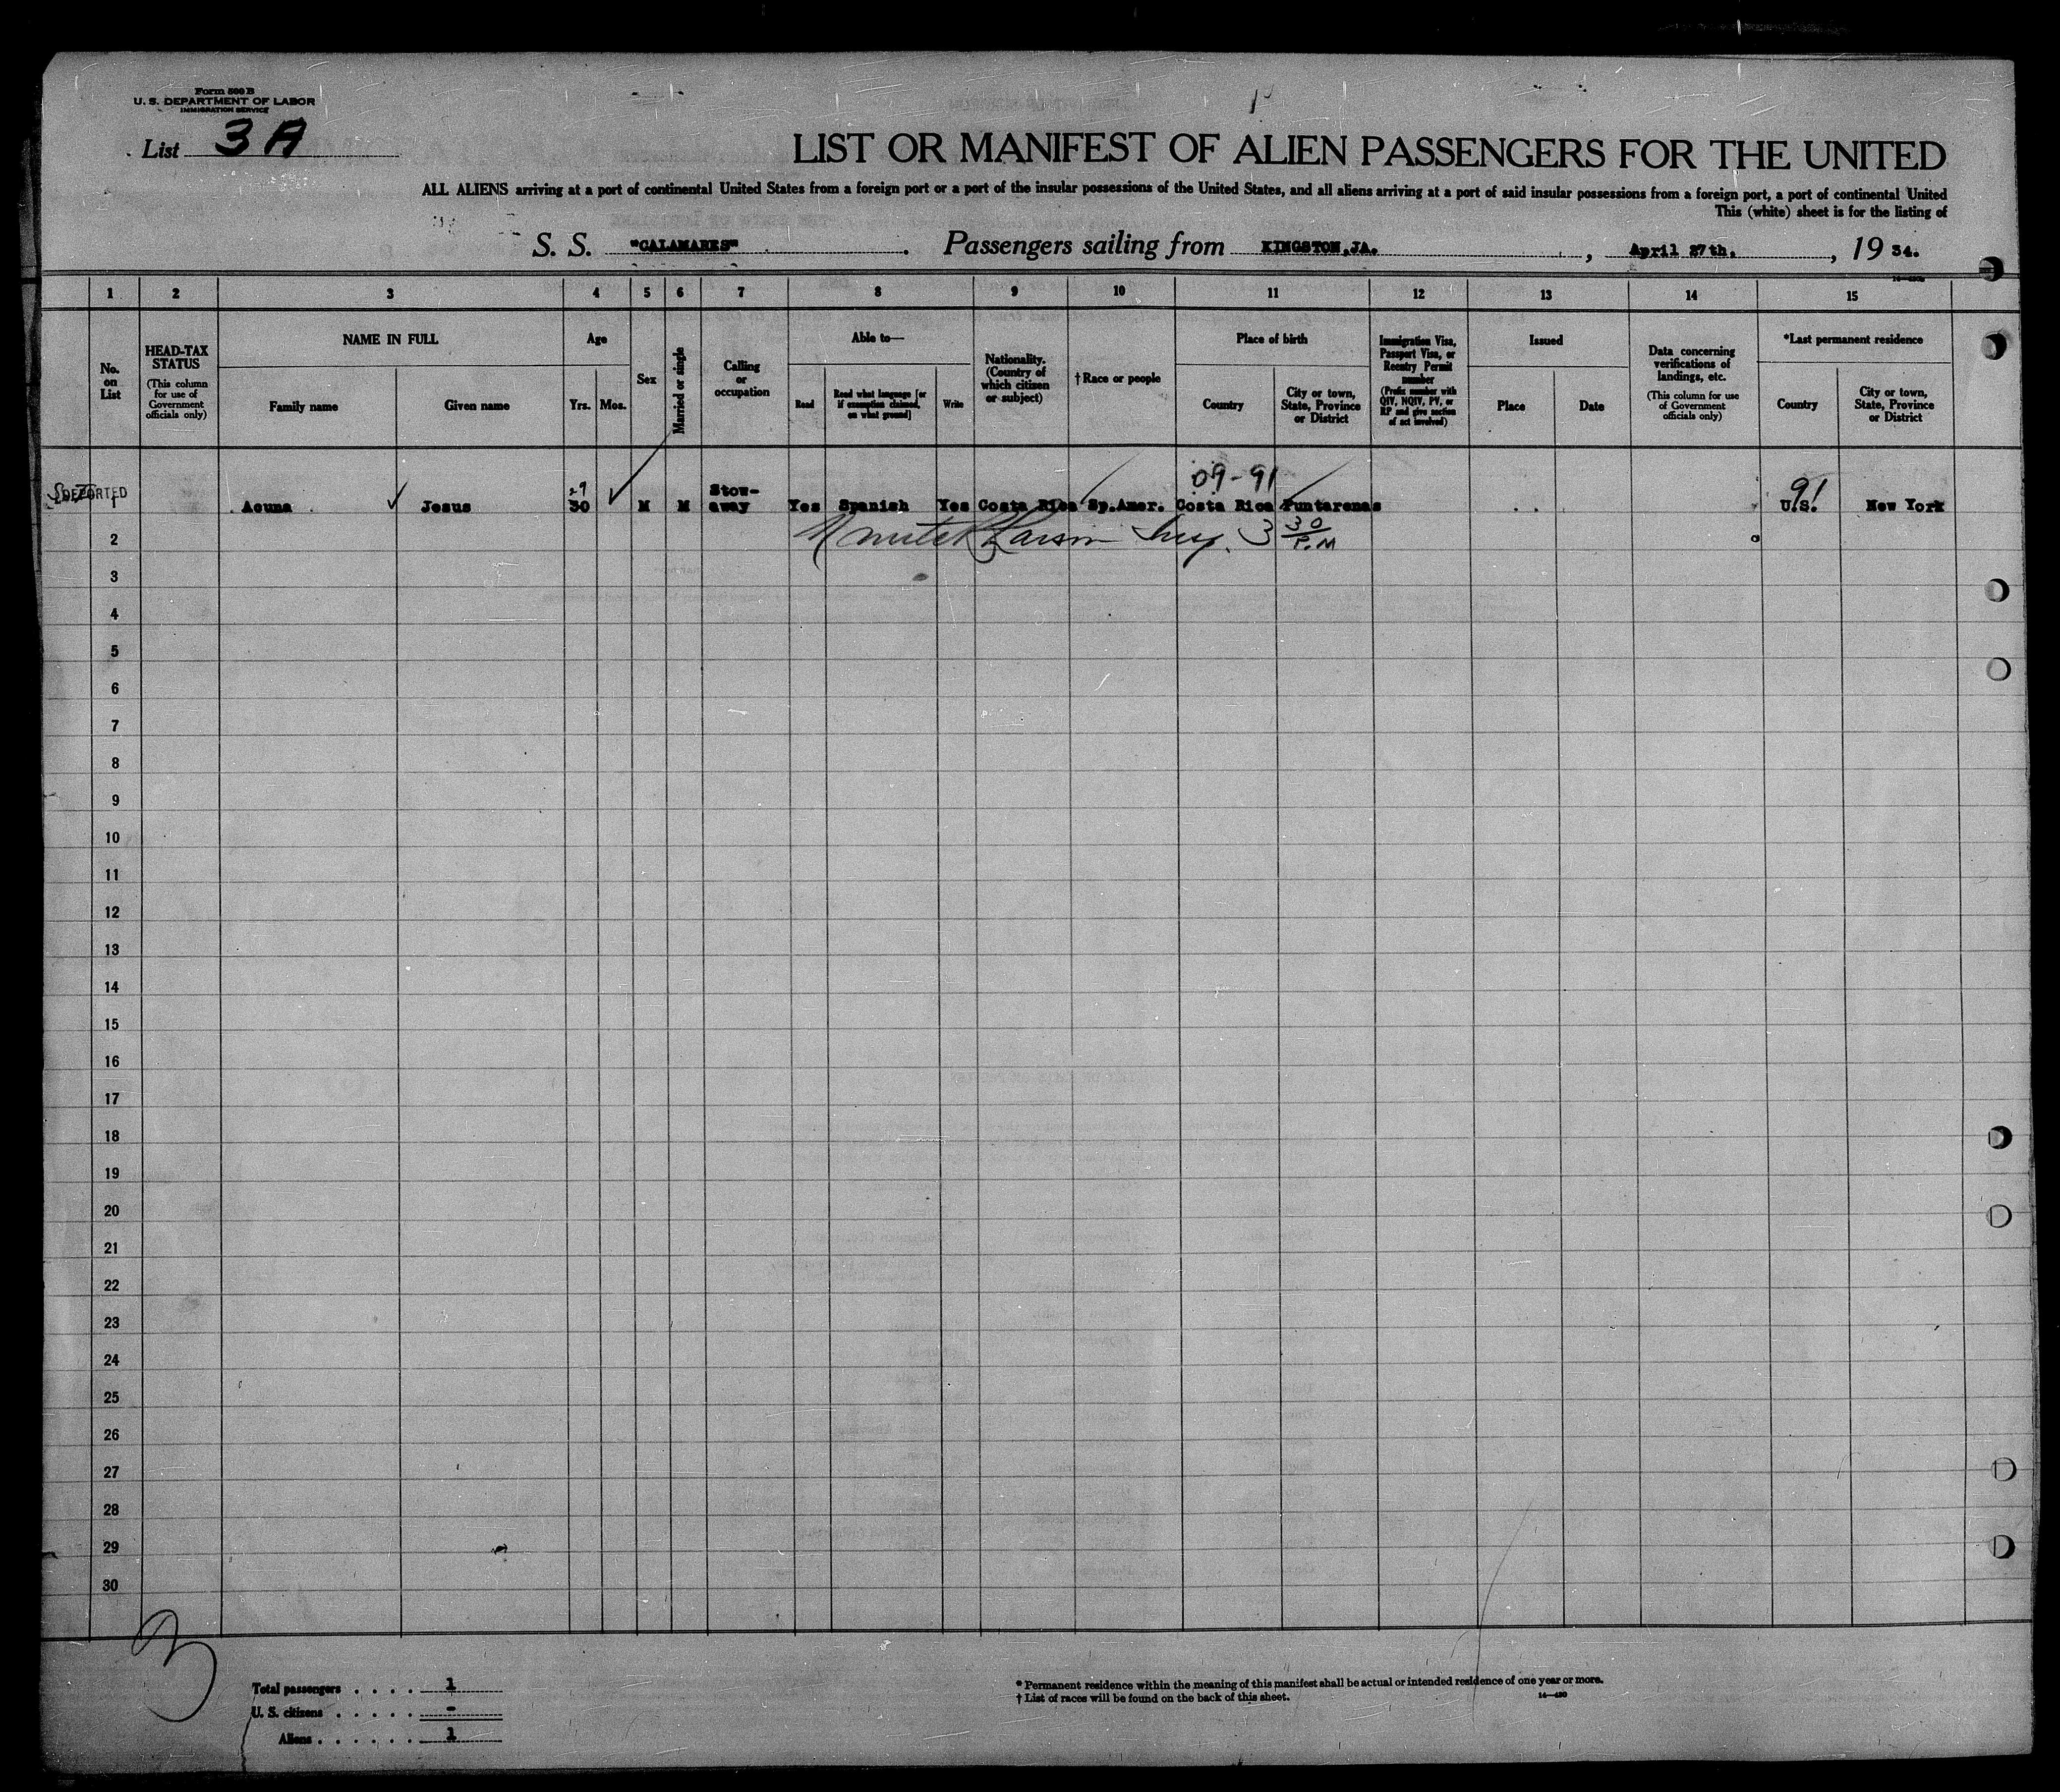 Form 500 B
U. S. DEPARTMENT OF LABOR
IMMIGRATION SERVICE
List 3 A
LIST OR MANIFEST OF ALIEN PASSENGERS FOR THE UNITED
ALL ALIENS arriving at a port of continental United States from a foreign port or a port of the insular possessions of the United States, and all aliens arriving at a port of said insular possessions from a foreign port, a port of continental United
This (white) sheet is for the listing of
S. S. "CALAMARES" . Passengers sailing from KINGSTON,JA. , April 27th. , 19 34.
1 2 3 4 5 6 7 8 9 10 11 12 13 14 15
No. on List
HEAD-TAX STATUS
(This column for use of Government officials only)
NAME IN FULL
Family name
Given name
Age
Yrs.
Mos.
Sex
Married or single
Calling or occupation
Able to—
Read
Read what language [or if exemption claimed, on what ground]
Write
Nationality. (Country of which citizen or subject)
†Race or people
Place of birth
Country
City or town, State, Province or District
Immigration Visa, Passport Visa, or Reentry Permit number
(Prefix number with QIV, NQIV, PV, or RP and give section of act involved)
Issued
Place
Date
Data concerning verifications of landings, etc.
(This column for use of Government officials only)
*Last permanent residence
Country
City or town, State, Province or District
29 09-91 91
DEPORTED 1 Acuna Jesus 30 M M Stow-away Yes Spanish Yes Costa Rica Sp.Amer. Costa Rica Puntarenas U.S. New York
2 Insp. 3 30 P.M
3
4
5
6
7
8
9
10
11
12
13
14
15
16
17
18
19
20
21
22
23
24
25
26
27
28
29
30
3
Total passengers . . . . 1
U. S. citizens . . . . . -
Aliens . . . . . . 1
* Permanent residence within the meaning of this manifest shall be actual or intended residence of one year or more.
† List of races will be found on the back of this sheet.
14—430